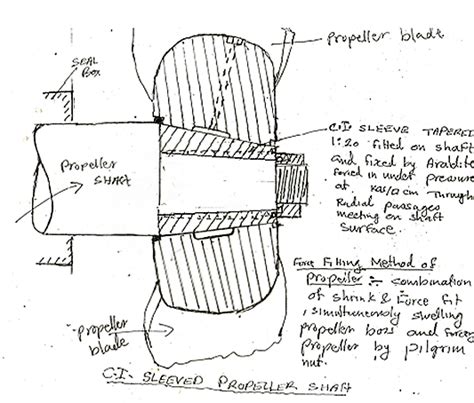 Propeller blade
SEAL
BOX
Propeller
SHAFT
C.I. SLEEVE TAPERED
1:20 fitted on shaft
and fixed by Araldite
forced in under pressure
at Through
Radial passages
meeting on shaft
Surface.
Force Fitting Method of
Propeller :- combination
of shrink & Force fit
, simultaneously swelling
propeller boss and forcing
propeller by pilgrim
nut.
Propeller
blade
C.I. SLEEVED PROPELLER SHAFT